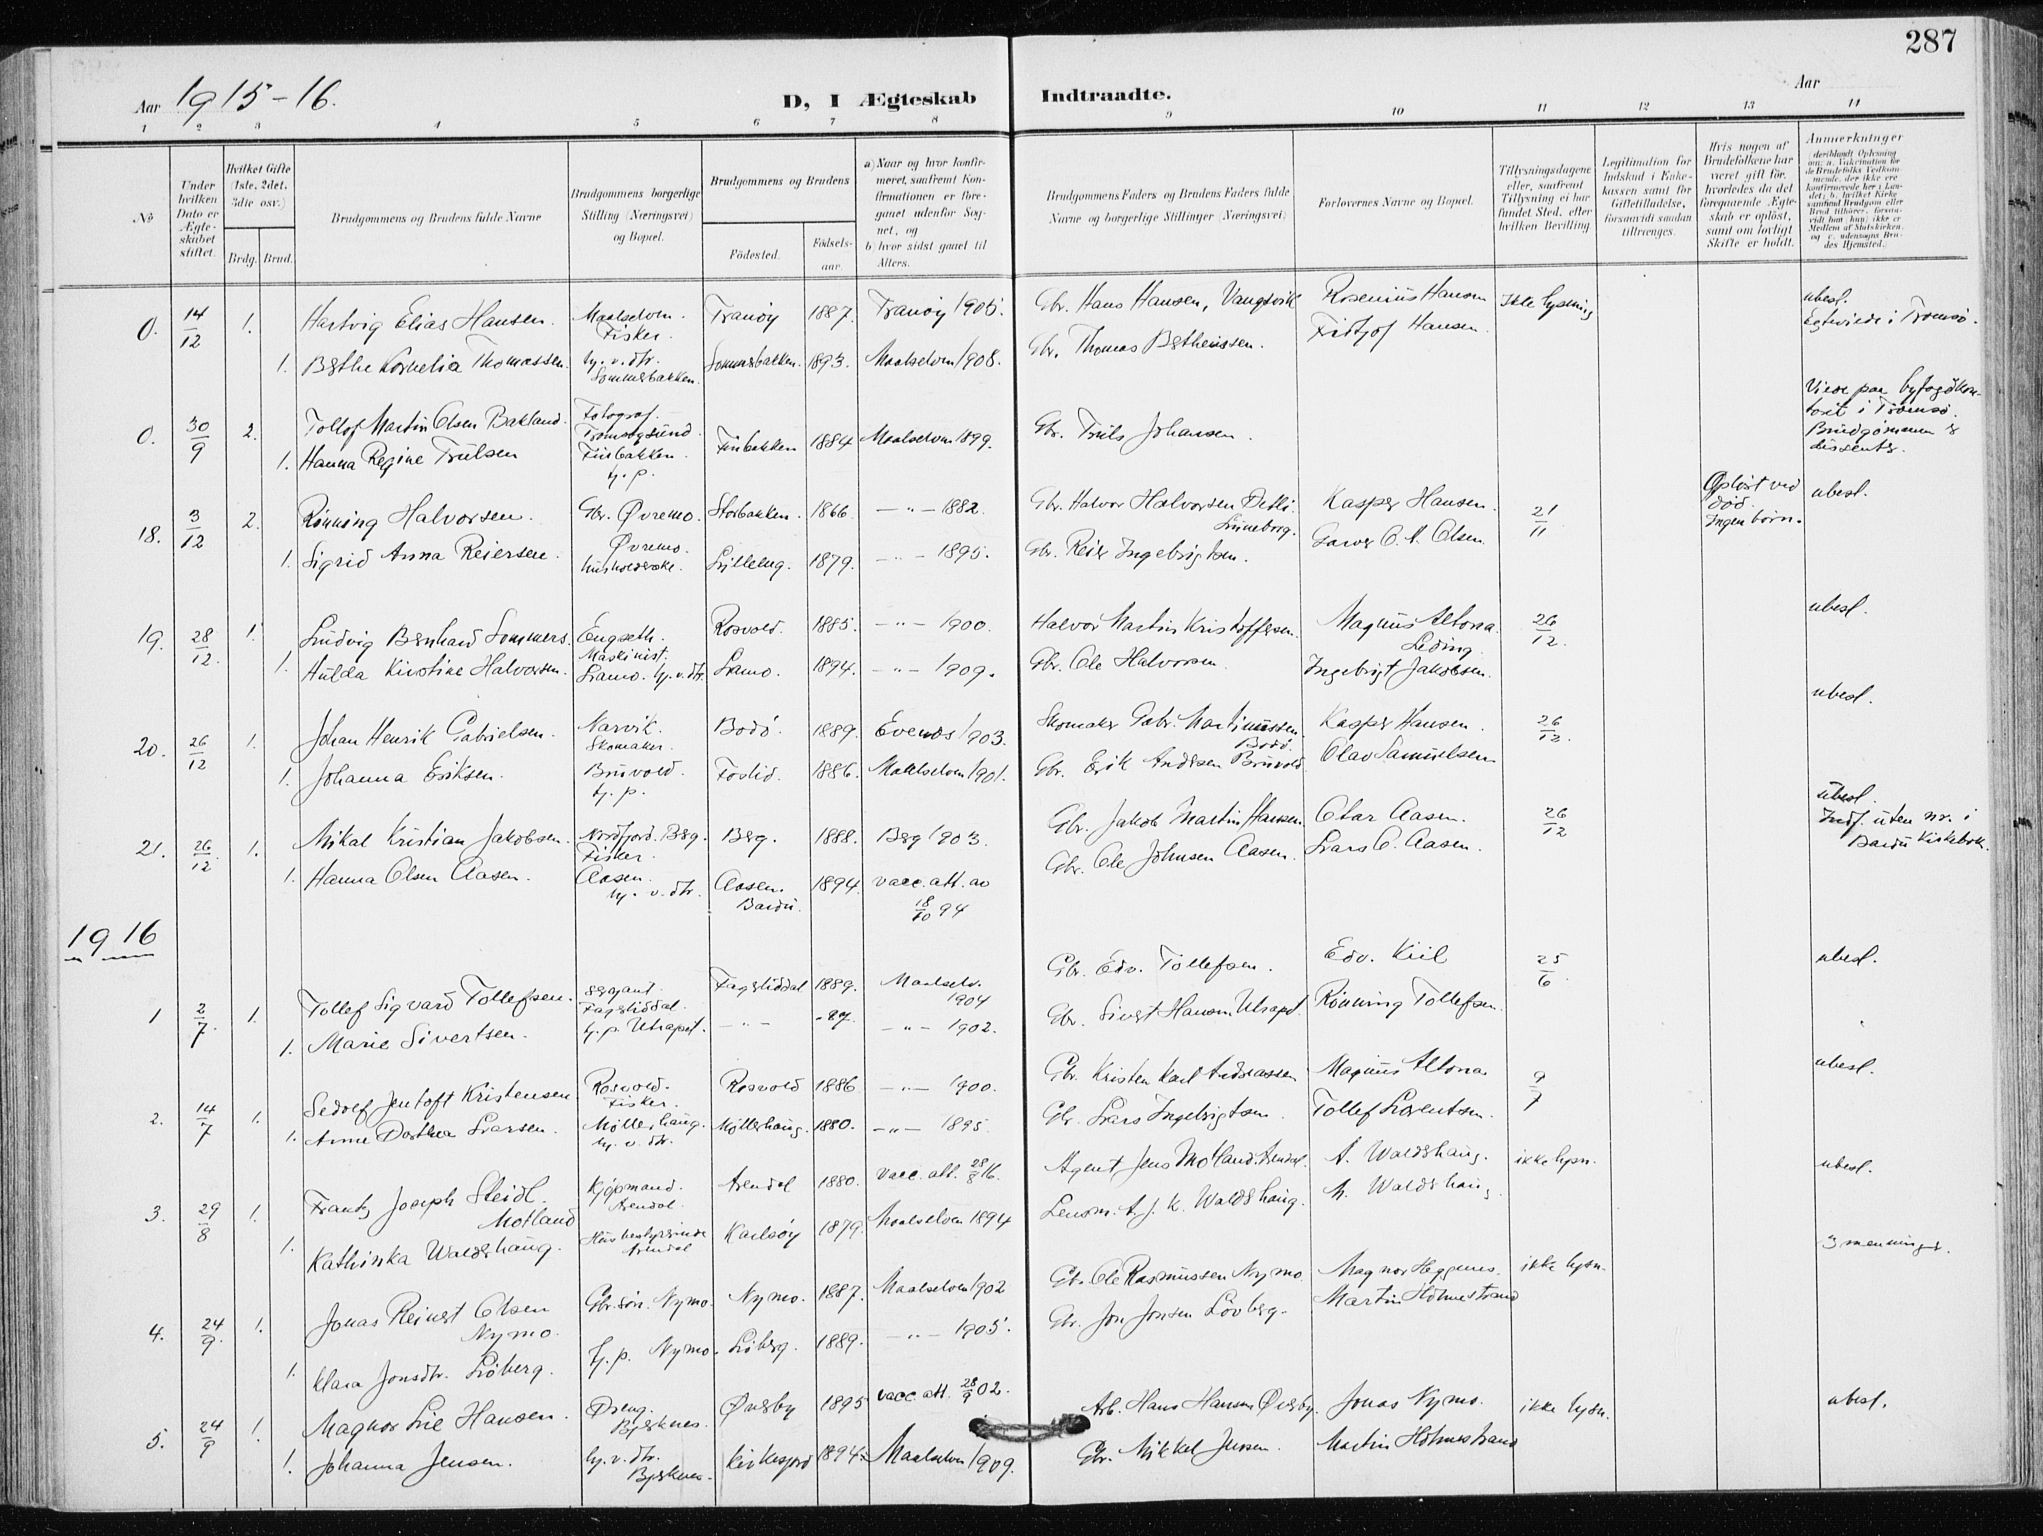 287
Aar 1915-16.
D, I Ægteskab Indtraadte.
Aar
1 2 3 4 5 6 7 8 9 10 11 12 13 14
No
Under hvilken Dato er Ægteskabet stiftet.
Hvilket Gifte (1ste, 2det, 3die osv.)
Brdg. Brud.
Brudgommens og Brudens fulde Navne
Brudgommens borgerlige Stilling (Næringsvei) og Bopæl.
Brudgommens og Brudens
Fødested. Fødselsaar.
a) Naar og hvor konfirmeret, saafremt Konfirmationen er foregaaet udenfor Sognet, og
b) hvor sidst gaaet til Alters.
Brudgommens Faders og Brudens Faders fulde Navne og borgerlige Stillinger (Næringsvei)
Forlovernes Navne og Bopæl.
Tillysningsdagene eller, saafremt Tillysning ei har fundet Sted, efter hvilken Bevilling
Legitimation for Indskud i Enkekassen samt for Giftetilladelse, forsaavidt saadan tiltrænges.
Hvis nogen af Brudefolkene har været gift før, hvorledes da det foregaaende Ægteskab er opløst, samt om lovligt Skifte er holdt.
Anmerkninger
0. 14/12 1. Hartvig Elias Hansen. Maalselven. Fisker. Tranøy 1887. Tranøy 1905. Gbr. Hans Hansen, Vangsvik Rosenius Hansen Ikke lysning ubesl. Egteviede i Tromsø.
1. Berthe Kornelia Thomassen. hj. v. dtr. Sommerbakken. Sommerbakken. 1893. Maalselven 1908. Gbr. Thomas Berthenssen. Fritjof Hansen.
0. 30/9 2. Tollof Martin Olsen Bakland. Fotograf. Tromsøysund. Viede paa byfogdkontoret i Tromsø. Brudgommen er dissenter.
1. Hanna Regine Trulsen Finbakken. hj. p. Finbakken 1884 Maalselven 1899. Gbr. Truls Johansen.
18. 3/12 2. Rønning Halvorsen. Gbr. Øvremo. Storbakken. 1866 —"— 1882. Gbr. Halvor Halvorsen Detli Luneborg. Kasper Hansen. 21/11 Opløst ved død. Ingen børn. ubesl.
1. Sigrid Anna Reiersen. Øvremo. husholderske. Lilleeng. 1879. —"— 1895. Gbr. Reier Ingebrigtsen. Garver O. A. Olsen.
19. 28/12. 1. Ludvig Bernhard Sommers. Engseth. Maskinist. Rosvold. 1885. —"— 1900. Halvor Martin Kristoffersen. Magnus Altona Leding. 26/12. ubesl.
1. Hulda Kirstine Halvorsen. Sramo. hj. v. dtr. Sramo. 1894. —"— 1909. Gbr. Ole Halvorsen. Ingebrigt Jakobsen.
20. 26/12 1. Johan Henrik Gabrielsen. Narvik. Skomaker. Bodø. 1889. Evenes 1903. Skomaker Gabr. Martinussen. Bodø. Kasper Hansen. 26/12. ubesl.
1. Johanna Eriksen. Bruvold. hj. p. Foslid. 1886. Maalselven 1901. Gbr. Erik Andersen Bruvold Olav Samuelsen
21. 26/12 1. Mikal Kristian Jakobsen. Nordfjord. Berg. Fisker. Berg. 1888. Berg 1903. Gbr. Jakob Martin Hansen. Otar Aasen. 26/12 ubesl. Indf. uten nr. i Bardu Kirkebok.
1. Hanna Olsen Aasen. Aasen. hj. v. dtr. Aasen. Bardu. 1894. vacc. att. av 18/10 94 Gbr. Ole Johnsen Aasen. Lars O. Aasen.
1916
1 2/7. 1. Tollef Sigvard Tollefsen. sergant. Fagerliddal. Fagerliddal 1889. Maalselv. 1904 Gbr. Edv. Tollefsen. Edv. Kiil 25/6 ubesl.
1. Marie Sivertsen. hj. p. —"— -89. —"— 1902. Gbr. Sivert Hansen Rønning Tollefsen.
2. 14/7 1. Sedolf Jentoft Kristensen Rosvold. Fisker. Rosvold 1886 —"— 1900. Gbr. Kristen Karl Andreassen Magnus Altona 9/7 ubesl.
1. Anne Dorthea Larsen. Møllerhaug. hj. v. dtr. Møllerhaug. 1880. —"— 1895. Gbr. Lars Ingebrigtsen. Tollef Lorentsen.
3. 29/8 1. Frantz Joseph Steidl. Motland Kjøpmand. Arendal. Arendal 1880. vacc. att. 28/8 16. Agent Jens Motland. Arendal. A. Waldshaug. ikke lysn. ubesl.
1. Kathinka Waldshaug. Husbestyrerinde Arendal Karlsøy 1879. Maalselven 1894 Lensm. A. J. K. Waldshaug. M. Waldshaug
4. 24/9. 1. Jonas Reinert Olsen Nymo. Gbr. søn. Nymo. Nymo. 1887. Maalselven 1902 Gbr. Ole Rasmussen Nymo Magnor Heggenes. ikke lysn. 3 menninger.
1. Klara Jonsdtr. Løberg. hj. p. Nymo. Løberg. 1889. —"— 1905. Gbr. Jon Jonsen Lövberg. Martin Holmestrand
5. 24/9 1. Magnor Lie Hansen. Dreng. Bjerknes. Øverby 1895 vacc. att. 28/9 02. Arb. Hans Hansen Øverby. Jonas Nymo. ikke lysn. ubesl.
1. Johanna Jensen. hj. v. dtr. Bjerknes. Kirkesjord 1894. Maalselven 1909. Gbr. Mikkel Jensen. Martin Holmestrand